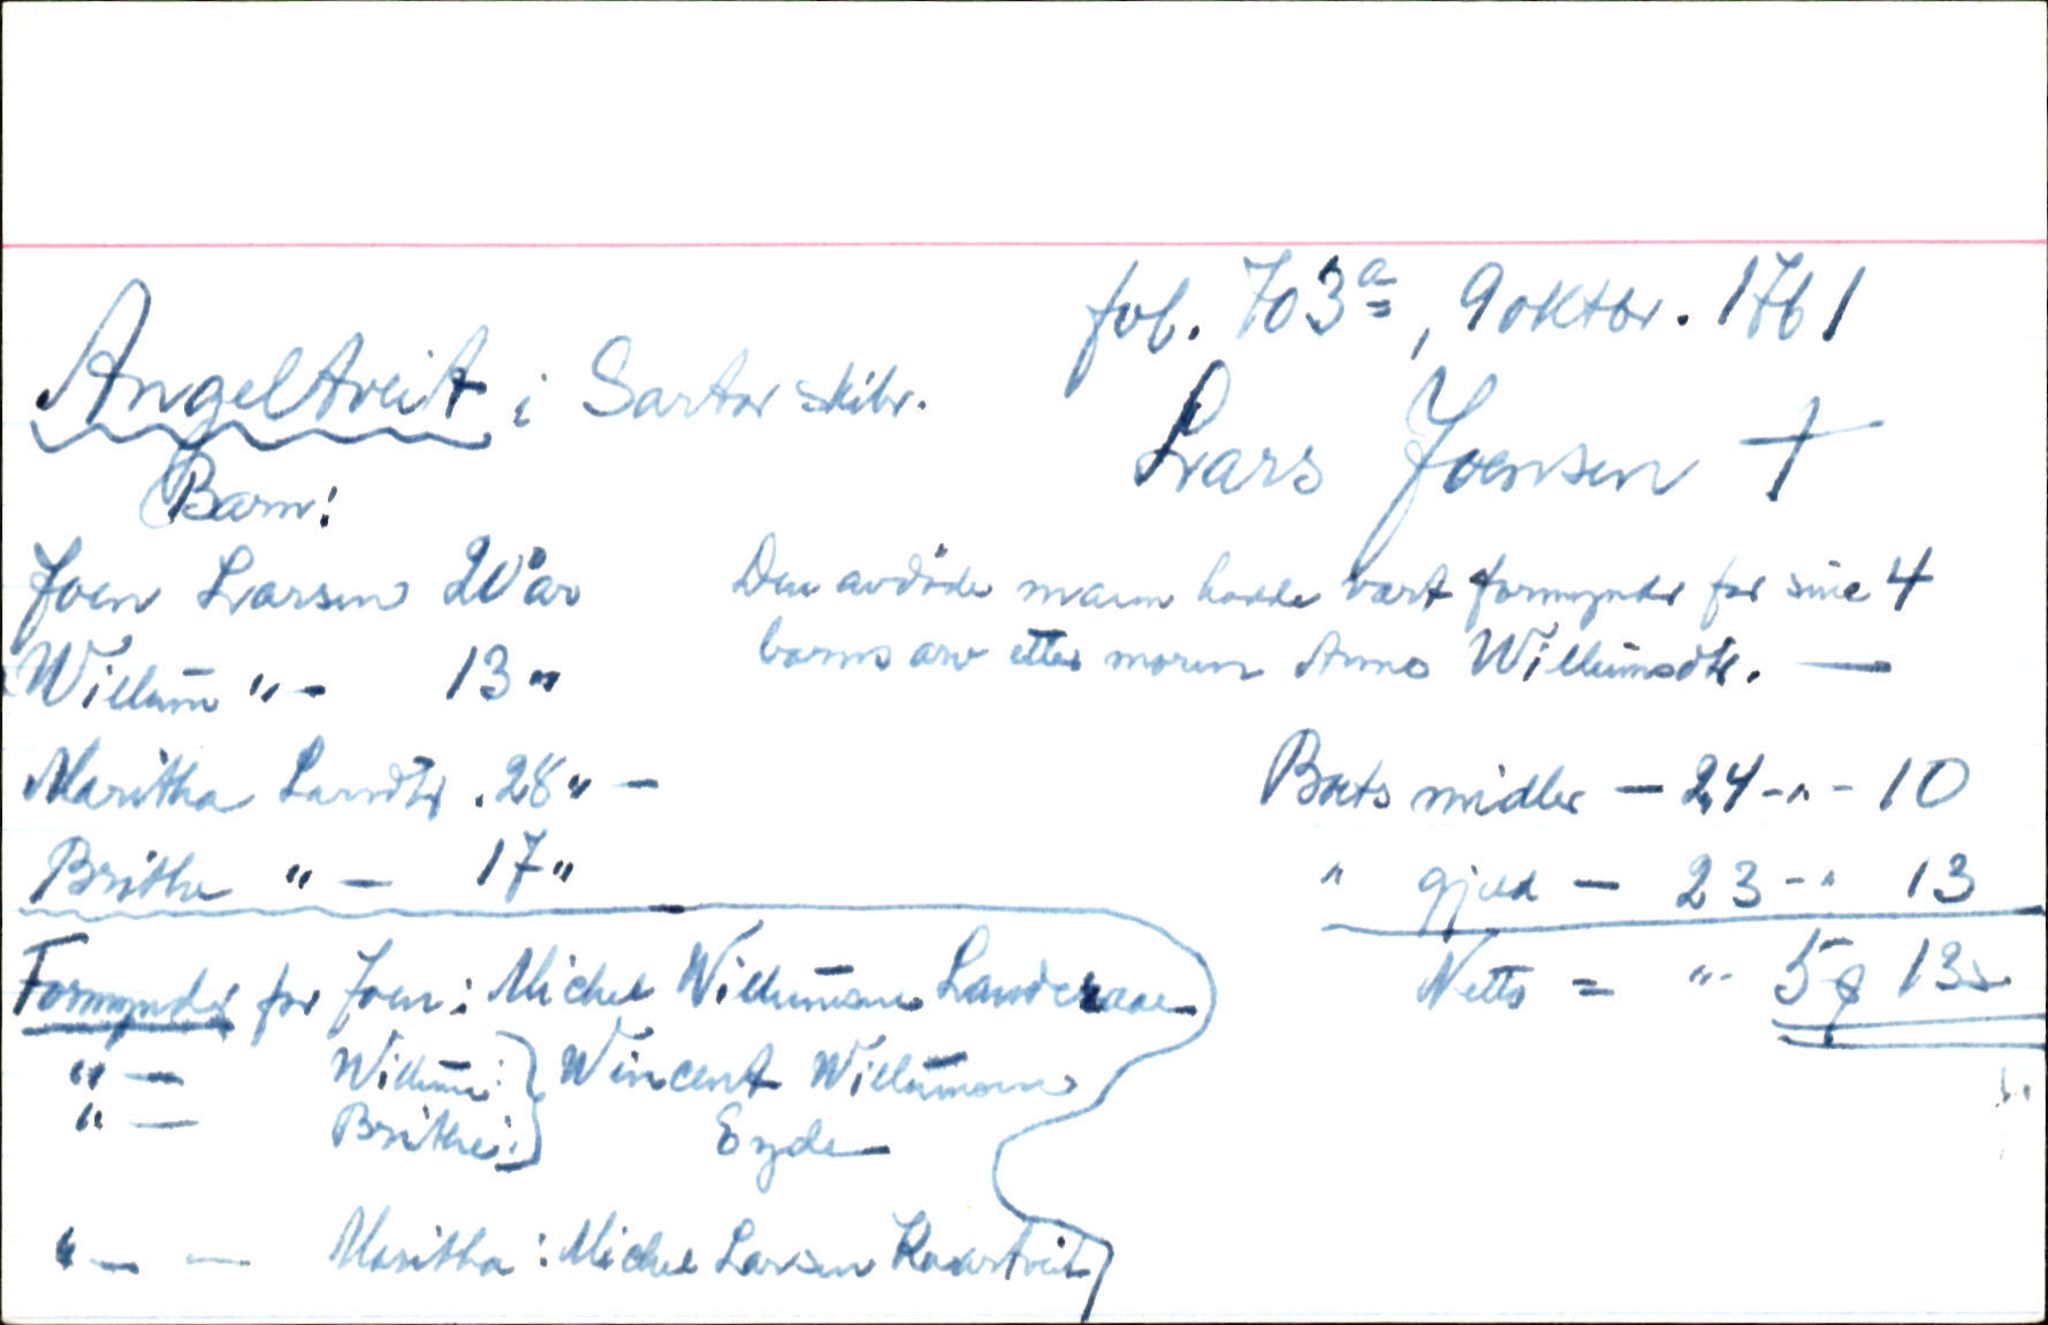 fol. 703a, 9 oktbr. 1761
Angeltveit i Sartor skibr.
Lars Joensen †
Barn:
Joen Larsen 20 år
Willum " - 13 "
Maritha Larsdtr. 28 " -
Brithe " - 17 "
Den avdöde mann hadde vært formynder for sine 4
barns arv etter moren Anna Willumsdtr. —
Boets midler - 24 - " - 10
" gjeld - 23 - " 13
Netto = " - 5 13 s
Formynder for Joen: Michel Willumsen Landeraae
" - Willum: } Wincent Willumsen
" - Brithe: } Eyde
" - - Maritha: Michel Larsen Kaartveit